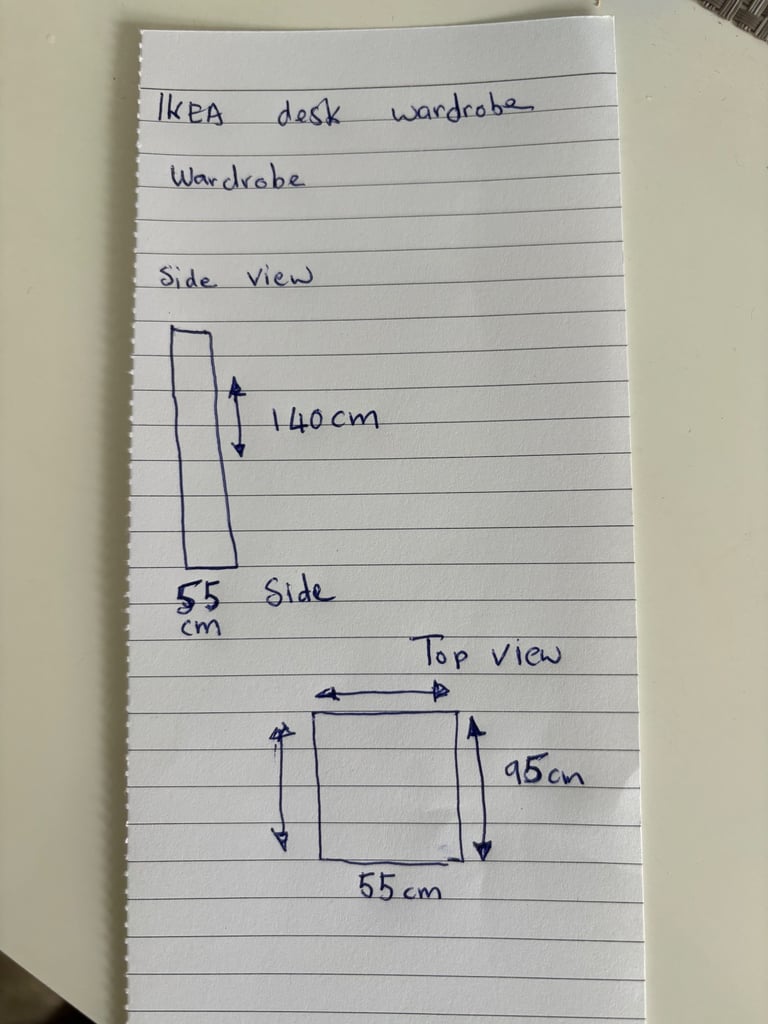 IKEA desk wardrobe
Wardrobe
Side view
140cm
55 Side
cm
Top view
95cm
55cm